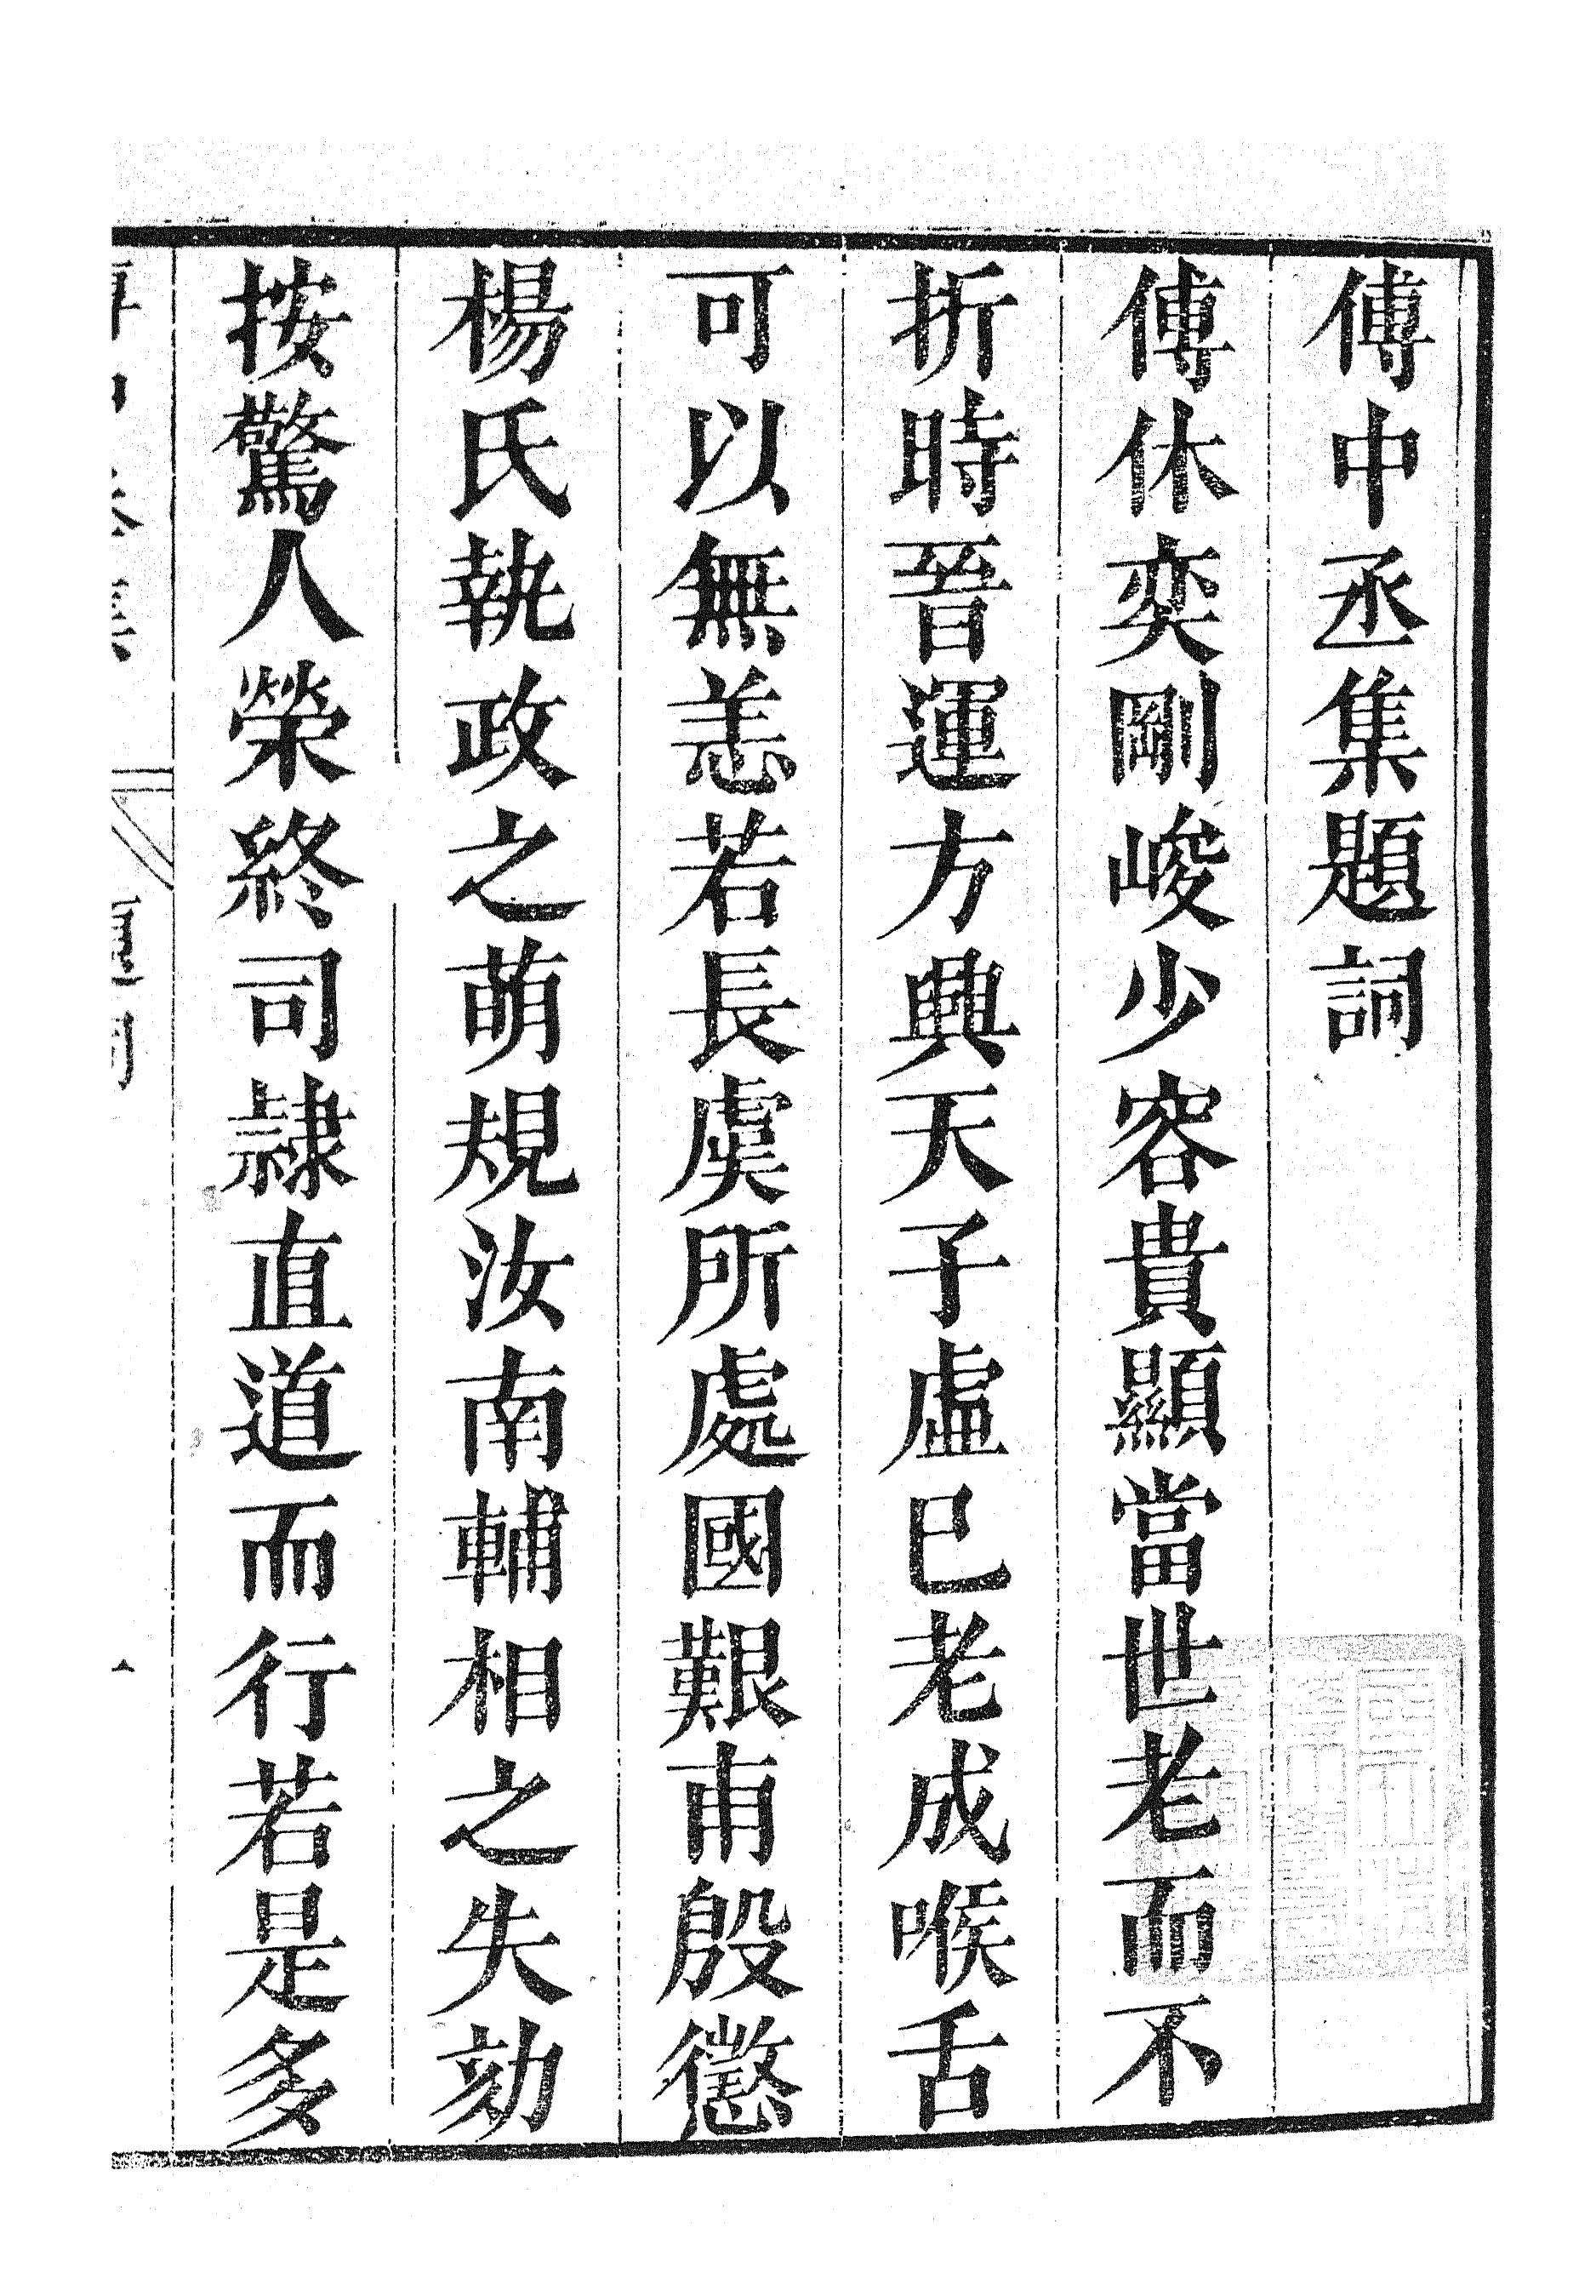 傅中丞集題詞
傅休奕剛峻少容貴顯當世老而不
折時晉運方興天子虛已老成喉舌
可以無恙若長虞所處國艱甫殷懲
楊氏執政之萌規汝南輔相之失劾
按驚人榮終司隸直道而行若是多